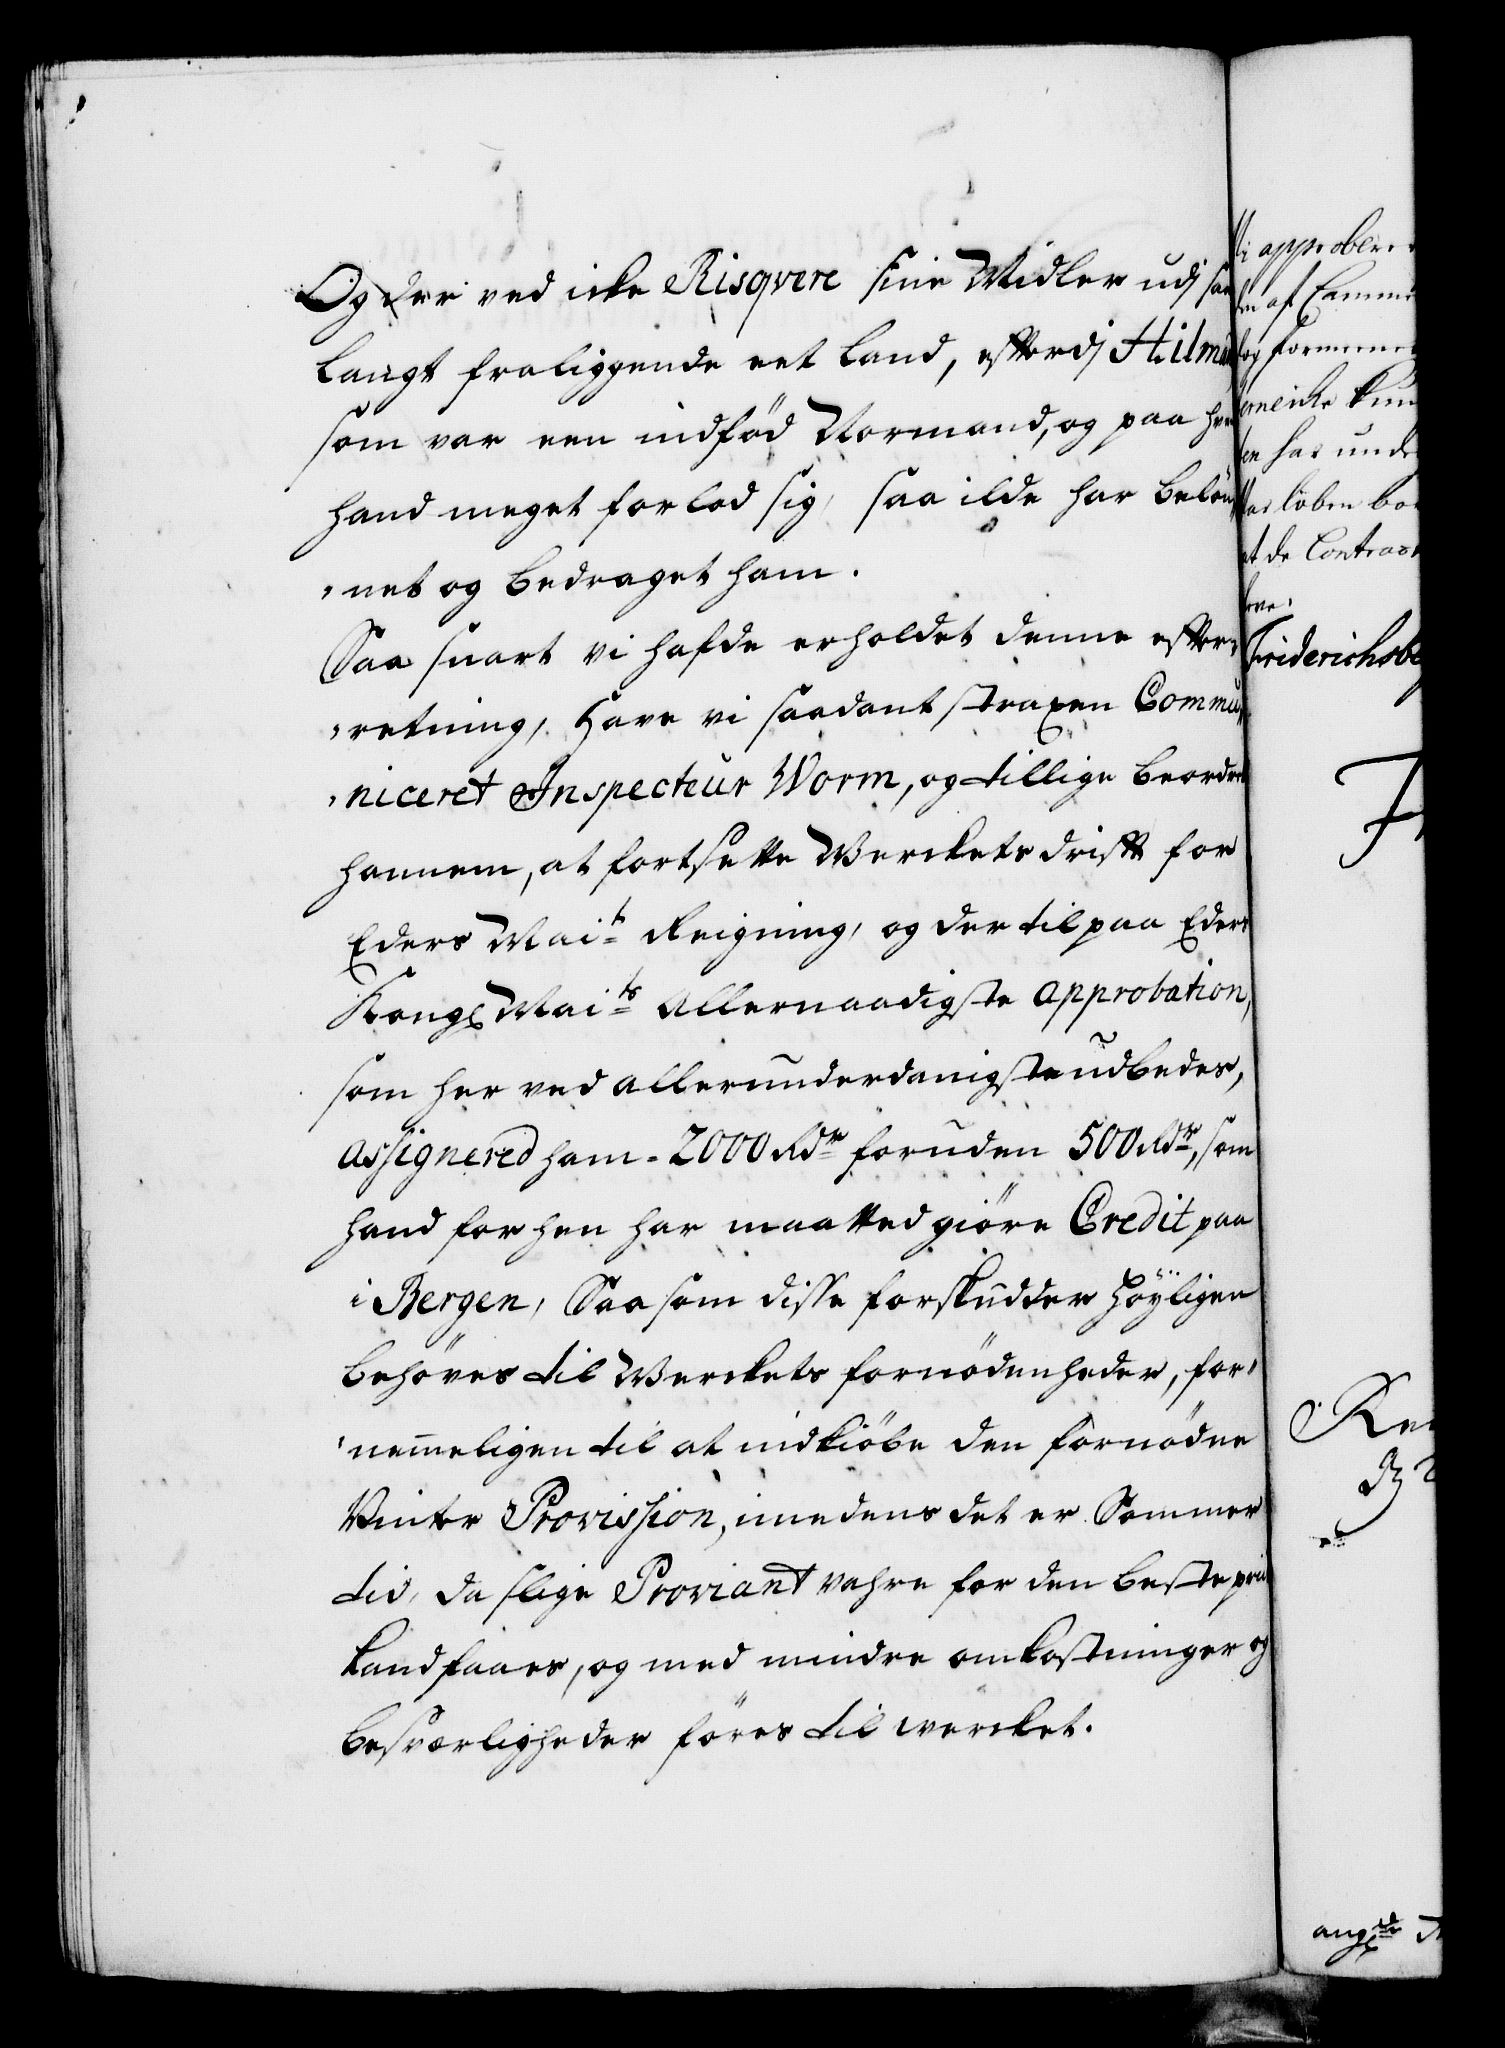 Og der ved icke Risqvere sine Midler udj saa
langt fraliggende eet Land, efterdj Hilmar
som var een indfød Normand, og paa hvem
hand meget forlod sig, saa ilde har belön¬
„net og bedraget ham.
Saa snart vi hafde erholdet denne efter¬
„retning, Have vi saadant straxen Commu¬
„niceret Inspecteur Worm, og tillige beordret
hannem, at fortsette Werckets drift for
Eders Mai:ts Reigning, og der til paa Eders
Kongl Mai:ts Allernaadigste approbation,
som her ved allerunderdanigste udbedes,
assignered ham 2000 Rdr foruden 500 Rdr, som
hand forhen har maatted giöre Credit paa
i Bergen, Saasom disse forskudder Höyligen
behöves til Werckets fornödenheder, for¬
„nemmeligen til at indkiöbe den fornödne
Vinter Provission, imedens det er Sommer
tid, da slige Proviant vahre for den beste priis
kand faaes, og med mindre omkostninger og
besværligheder föres til wercket.
approbere
af Camme
formeene
icke kun
har unde
löben bo
at de Contract
Friderichsbe